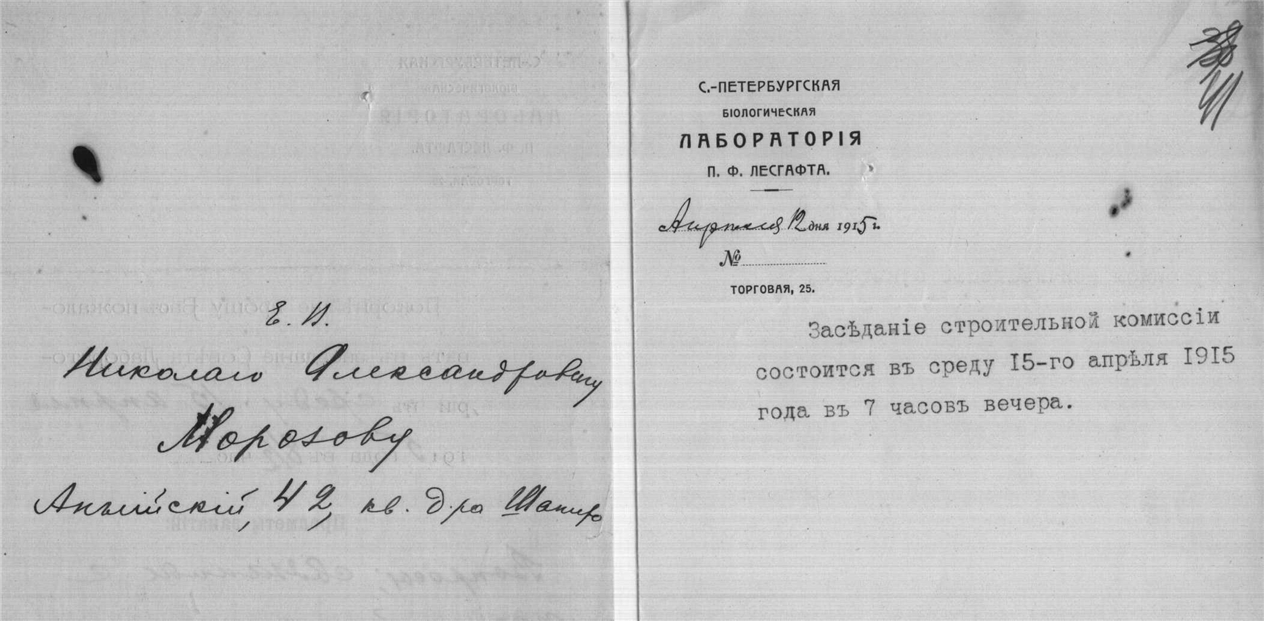 Е. В.
Николаю Александровичу
Морозову
Англійскій 42, кв. д-ра Шапиро
38
41
С.-ПЕТЕРБУРГСКАЯ
БІОЛОГИЧЕСКАЯ
ЛАБОРАТОРІЯ
П. Ф. ЛЕСГАФТА.
Апрѣля 12 дня 1915 г.
№
ТОРГОВАЯ, 25.
Засѣданіе строительной комиссіи
состоится въ среду 15-го апрѣля 1915
года въ 7 часовъ вечера.